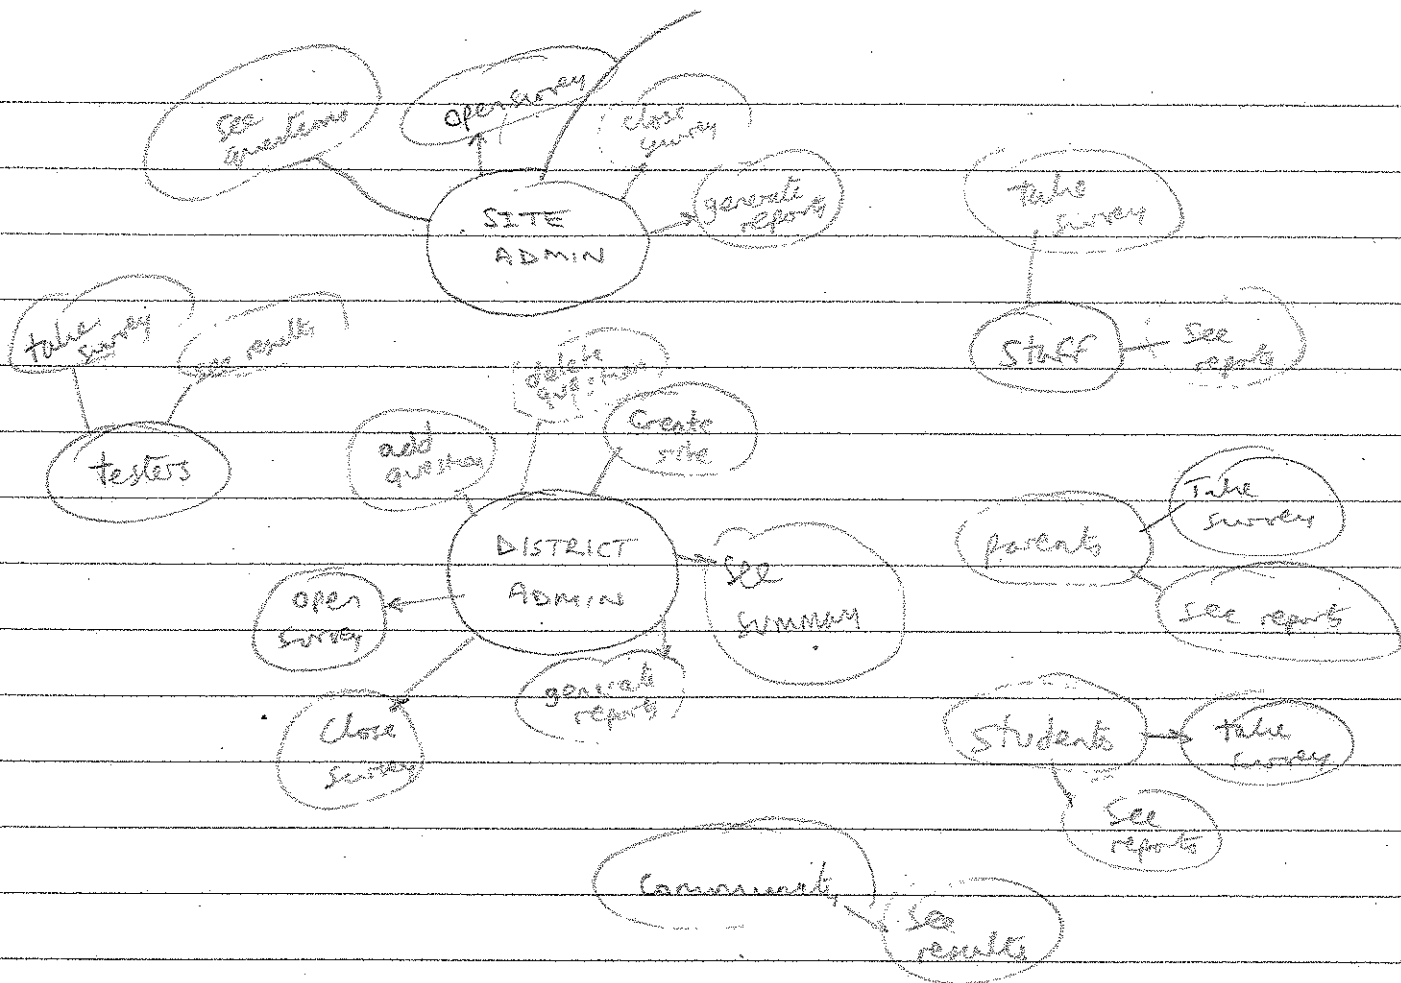 see
questions
open survey
close
survey
generate
reports
SITE
ADMIN
take
survey
Staff
see
reports
take
survey
see results
testers
delete
question
Create
site
add
question
DISTRICT
ADMIN
see
summary
open
survey
generate
reports
Close
survey
parents
Take
survey
see reports
Students
take
survey
See
reports
Community
See
results